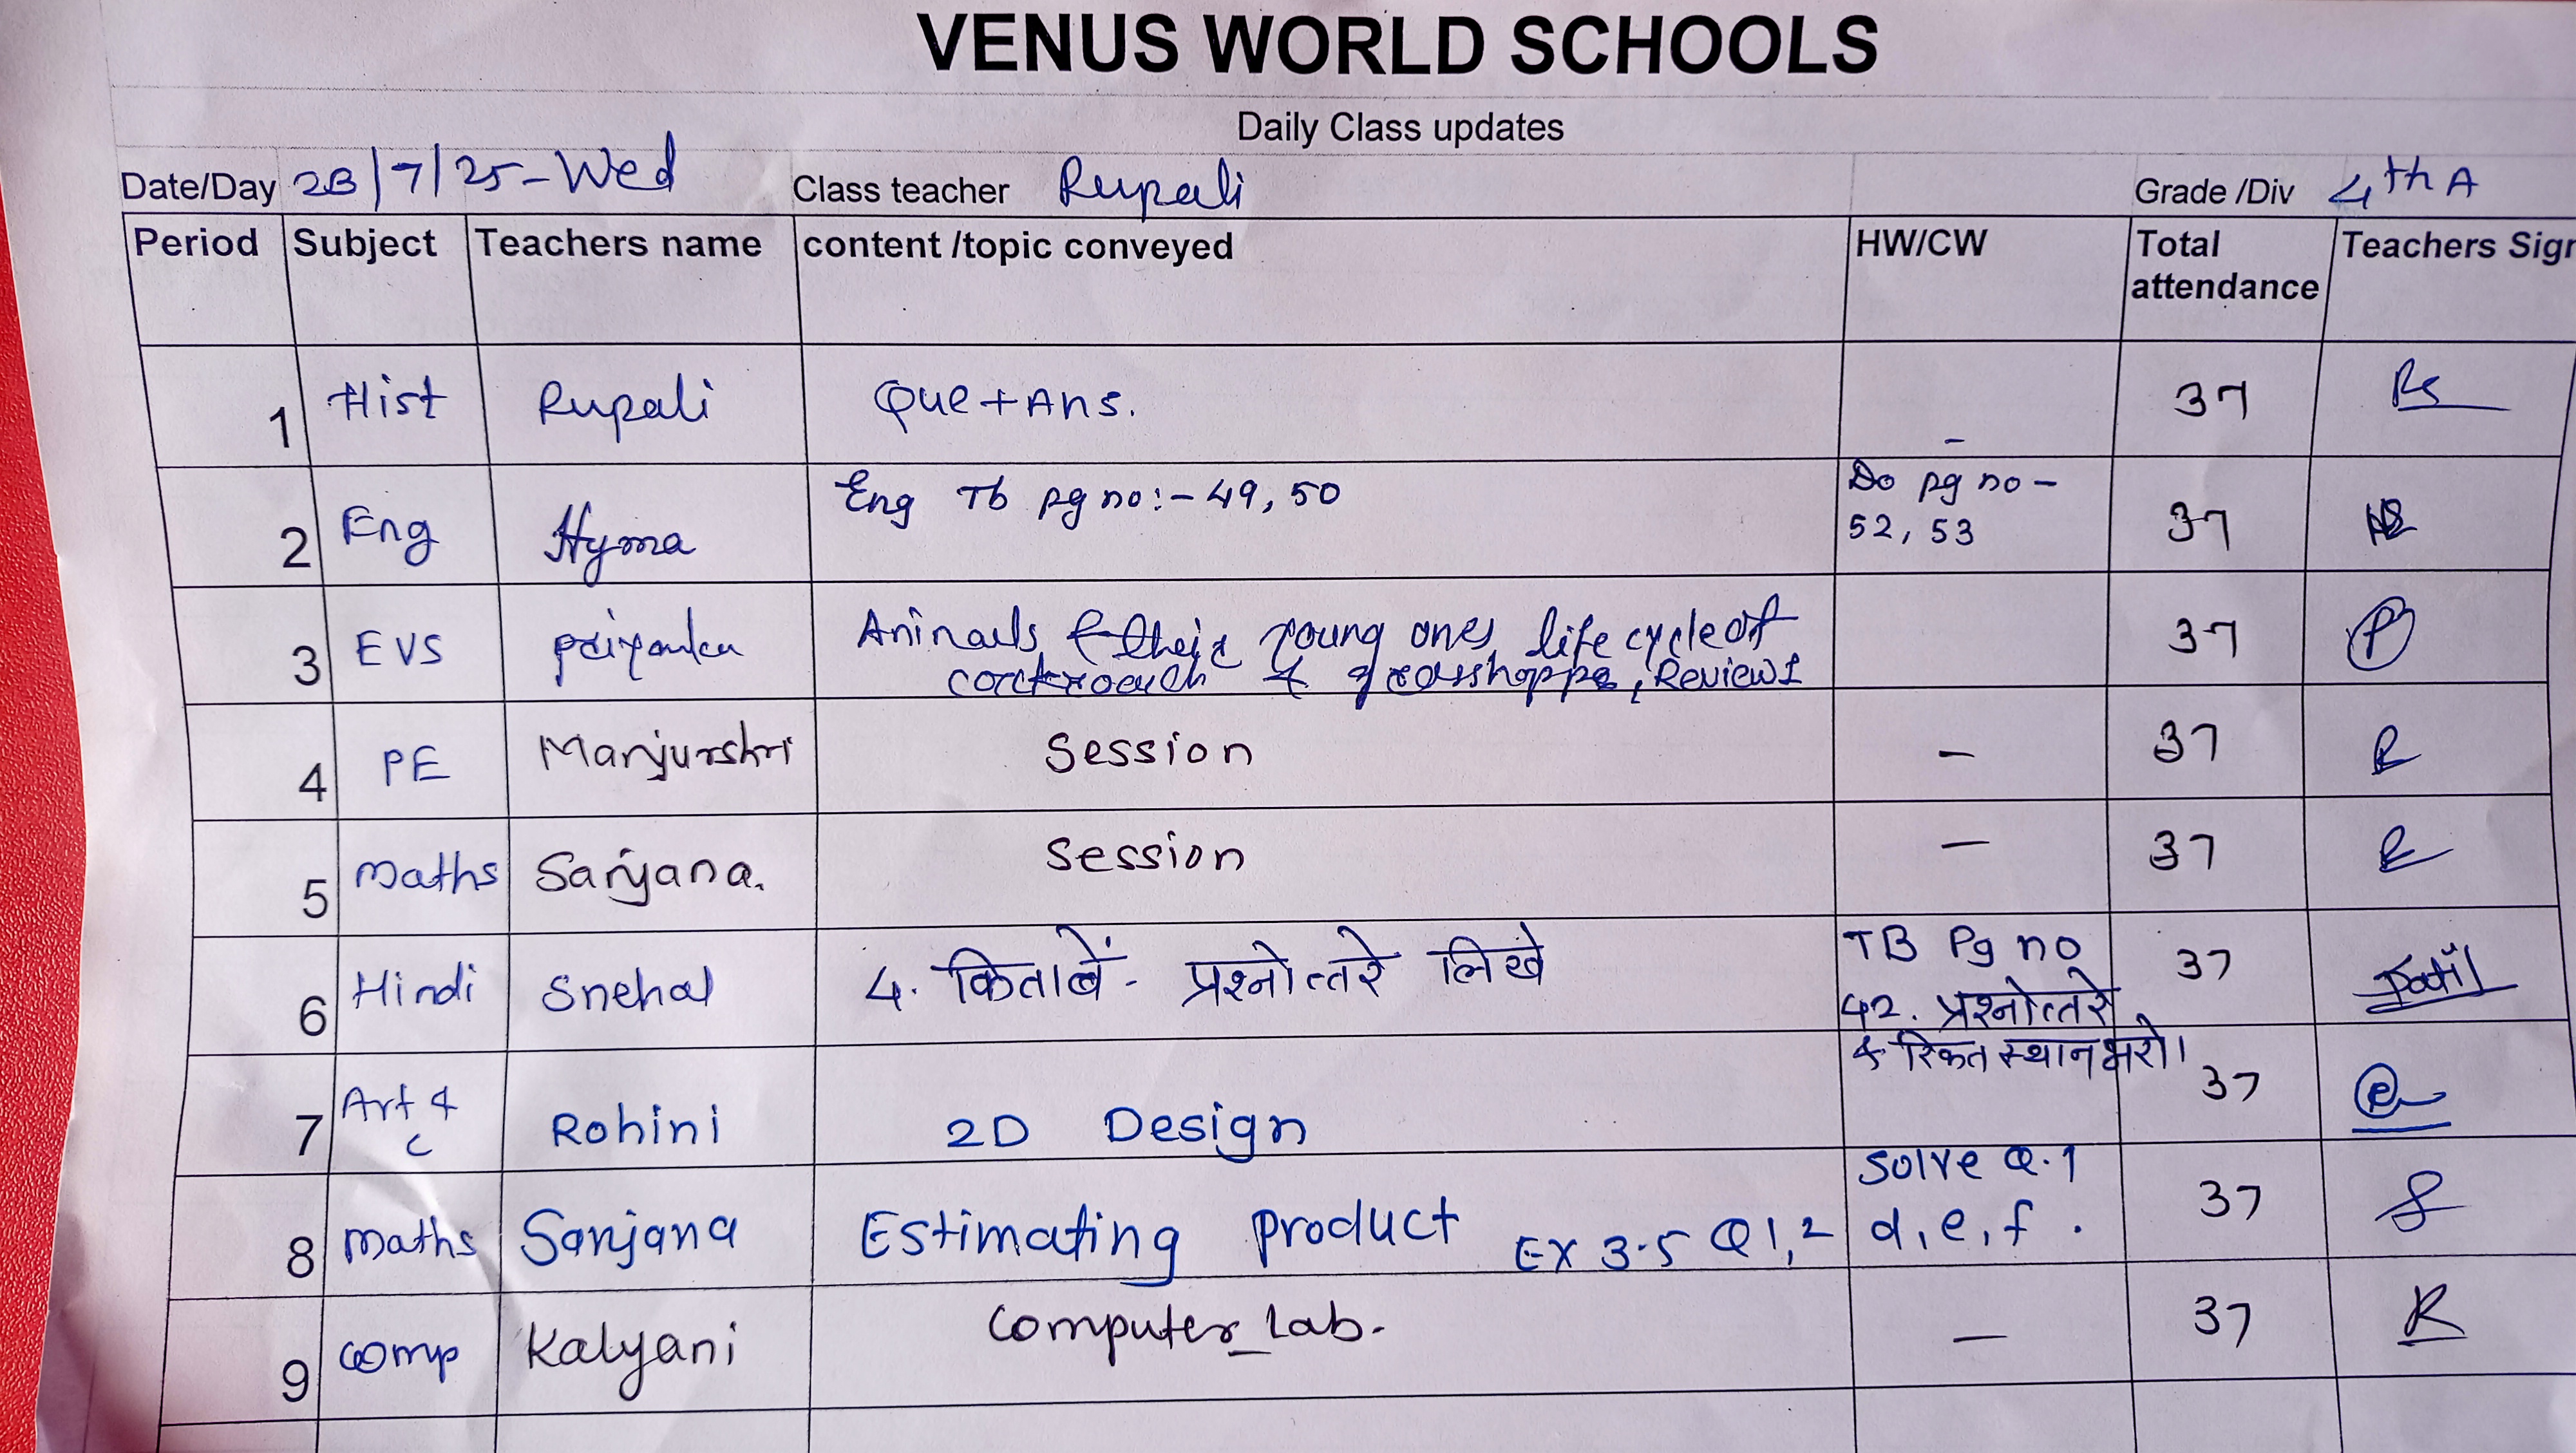 VENUS WORLD SCHOOLS
Daily Class updates
Date/Day 23/7/25-Wed Class teacher Rupali Grade /Div 4th A
Period Subject Teachers name content /topic conveyed HW/CW Total attendance Teachers Sign
1 Hist Rupali Que+Ans. - 37
2 Eng Hyma Eng Tb pg no:- 49, 50 Do pg no - 52, 53 37
3 EVS Priyanka Animals & their young ones, life cycle of
cockroach & grasshoppe, Review 1 37 P
4 PE Manjurshri Session - 37 R
5 Maths Sanjana. Session - 37 R
6 Hindi Snehal 4. किताबें - प्रश्नोत्तरे लिखे TB Pg no 37 Patil
42. प्रश्नोत्तरे
& रिक्त स्थान भरो।
7 Art & C Rohini 2D Design 37
8 Maths Sanjana Estimating product Ex 3.5 Q1,2 Solve Q.1 d, e, f. 37
9 comp Kalyani Computer Lab. - 37 K